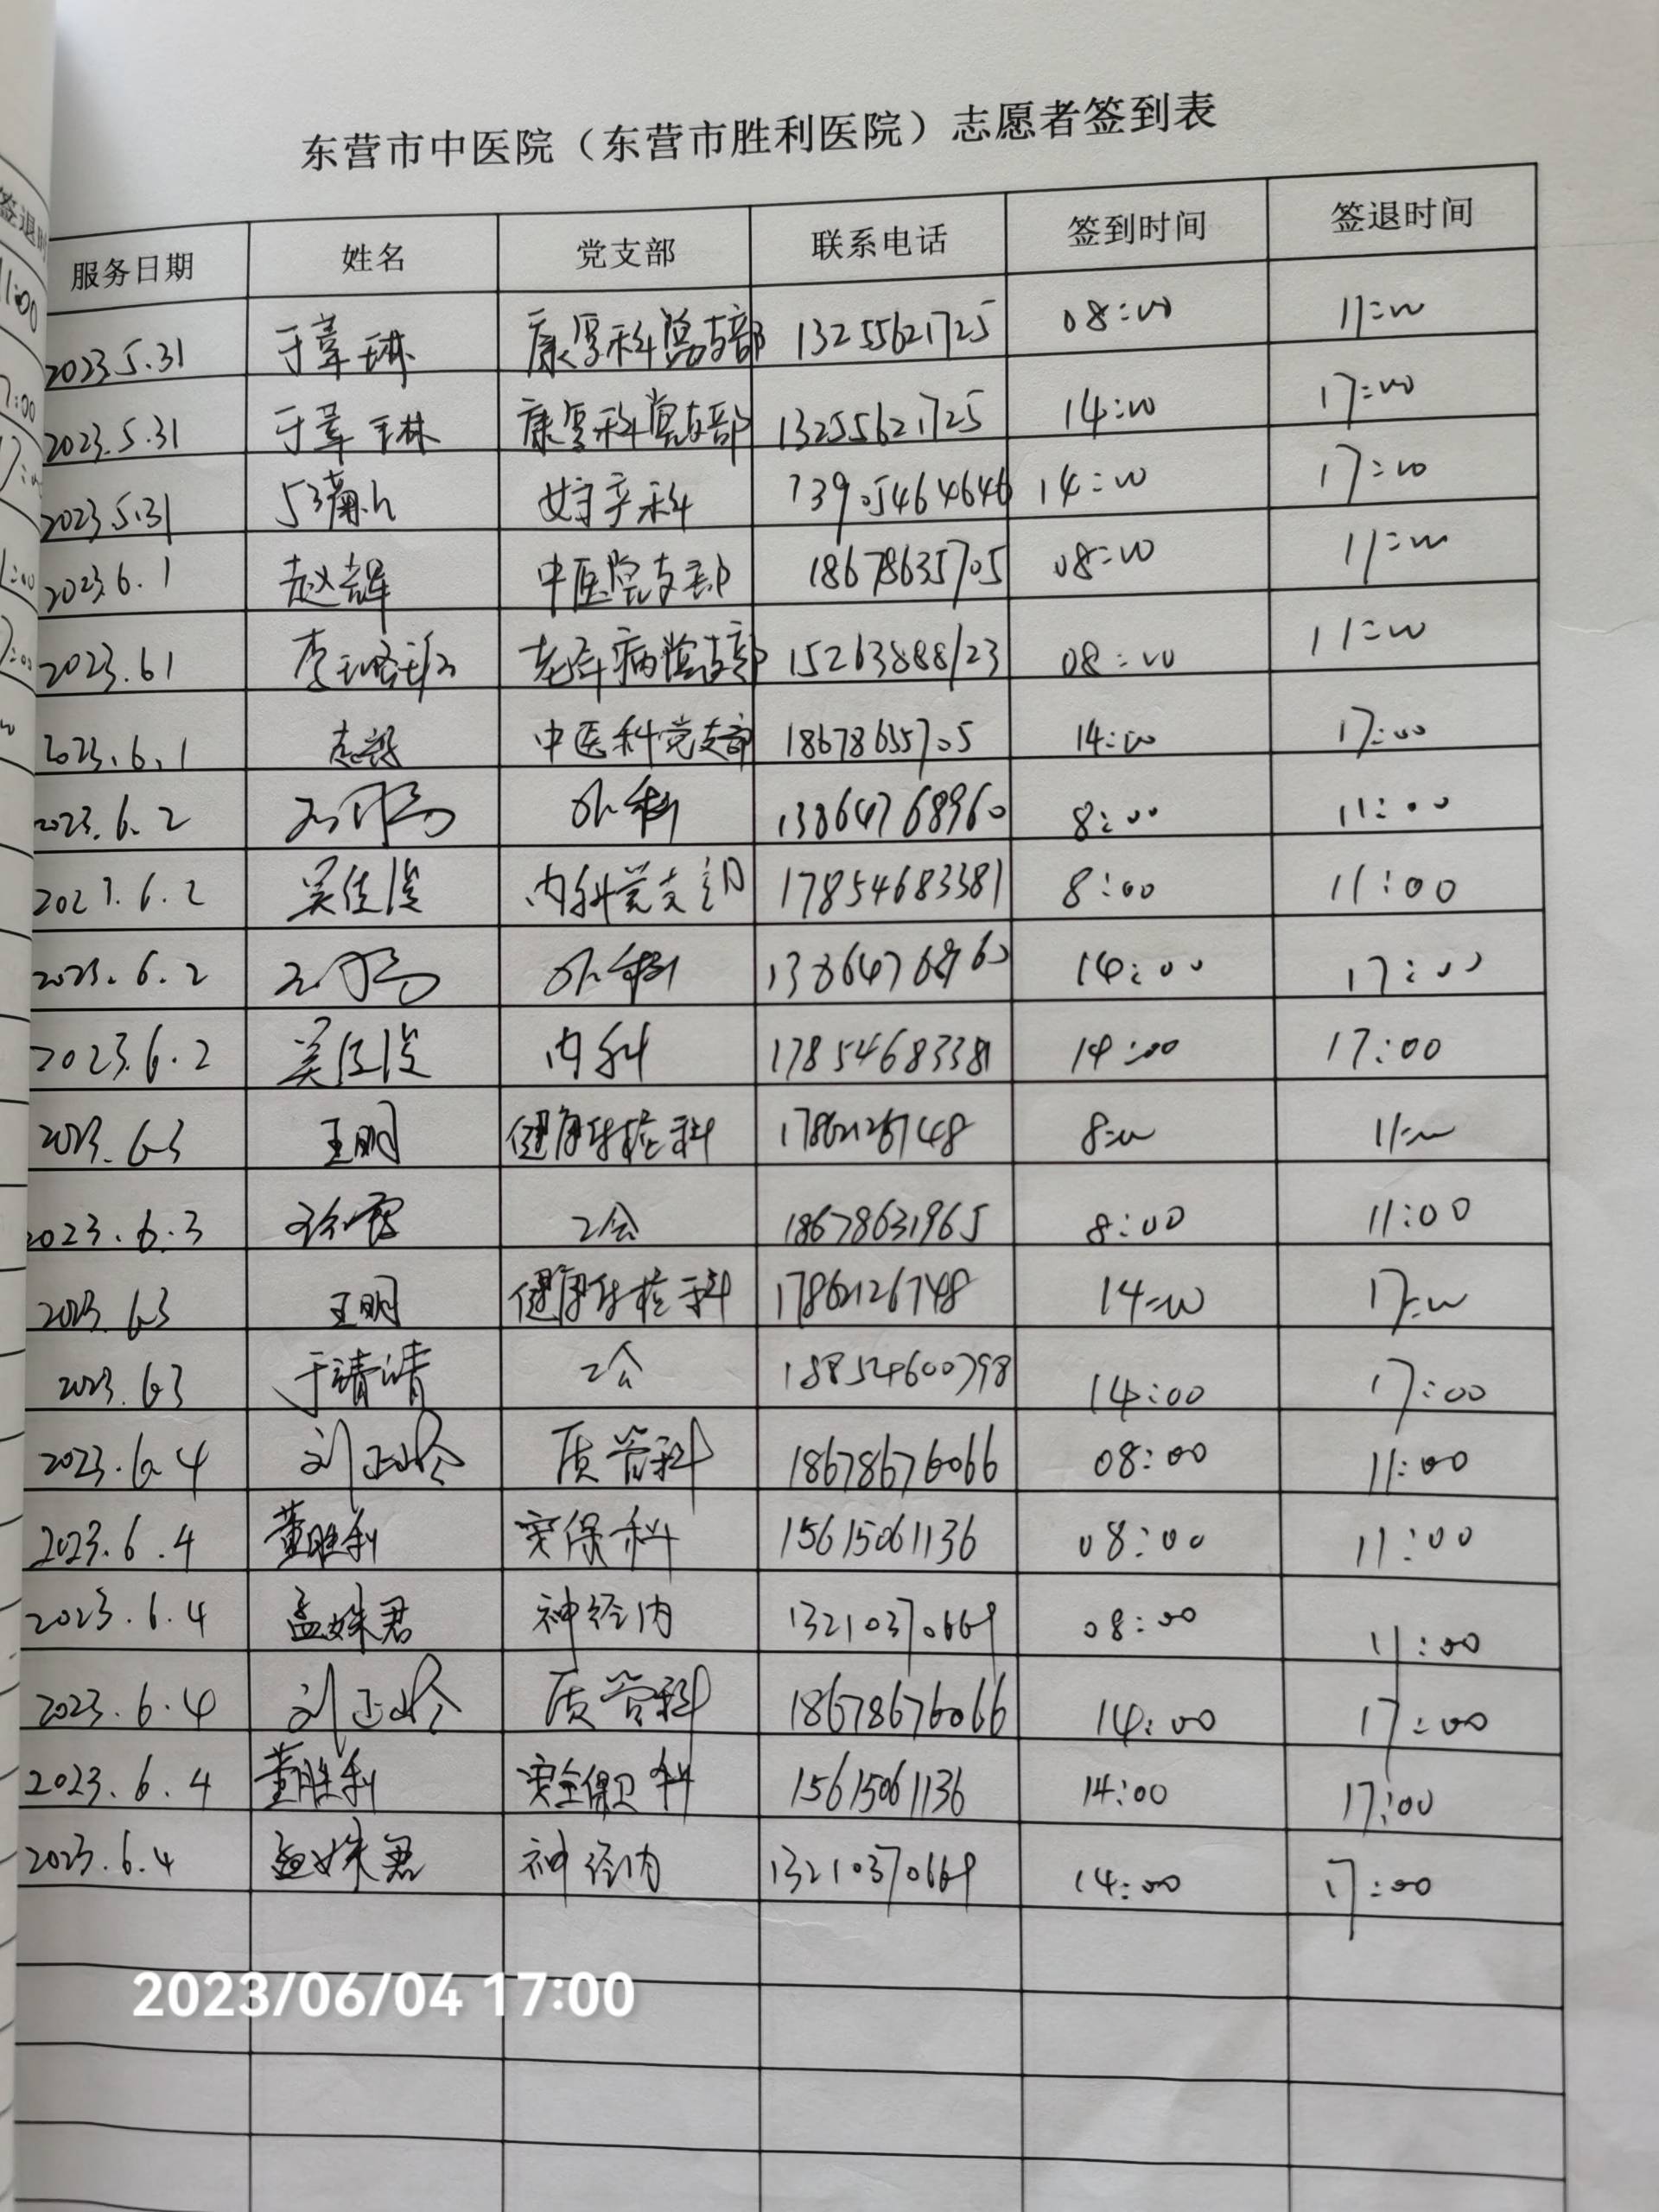 东营市中医院（东营市胜利医院）志愿者签到表
服务日期 姓名 党支部 联系电话 签到时间 签退时间
2023.5.31 康复科党支部 13255621725 08:00 11:00
2023.5.31 康复科党支部 13255621725 14:00 17:00
2023.5.31 妇产科 13905464646 14:00 17:00
2023.6.1 赵辉 中医院支部 18678635705 08:00 11:00
2023.6.1 老年病党支部 15263888123 08:00 11:00
2023.6.1 中医科党支部 18678635705 14:00 17:00
2023.6.2 外科 13864768960 8:00 11:00
2023.6.2 内科党支部 17854683381 8:00 11:00
2023.6.2 外科 13864768960 14:00 17:00
2023.6.2 内科 17854683381 14:00 17:00
2023.6.3 王明 健康体检科 17862126748 8:00 11:00
2023.6.3 工会 18678631965 8:00 11:00
2023.6.3 王明 健康体检科 17862126748 14:00 17:00
2023.6.3 于靖靖 工会 18854600798 14:00 17:00
2023.6.4 质管科 18678676066 08:00 11:00
2023.6.4 董胜利 安保科 15615061136 08:00 11:00
2023.6.4 孟姝君 神经内 13210370669 08:00 11:00
2023.6.4 质管科 18678676066 14:00 17:00
2023.6.4 董胜利 安全保卫科 15615061136 14:00 17:00
2023.6.4 孟姝君 神经内 13210370669 14:00 17:00
2023/06/04 17:00